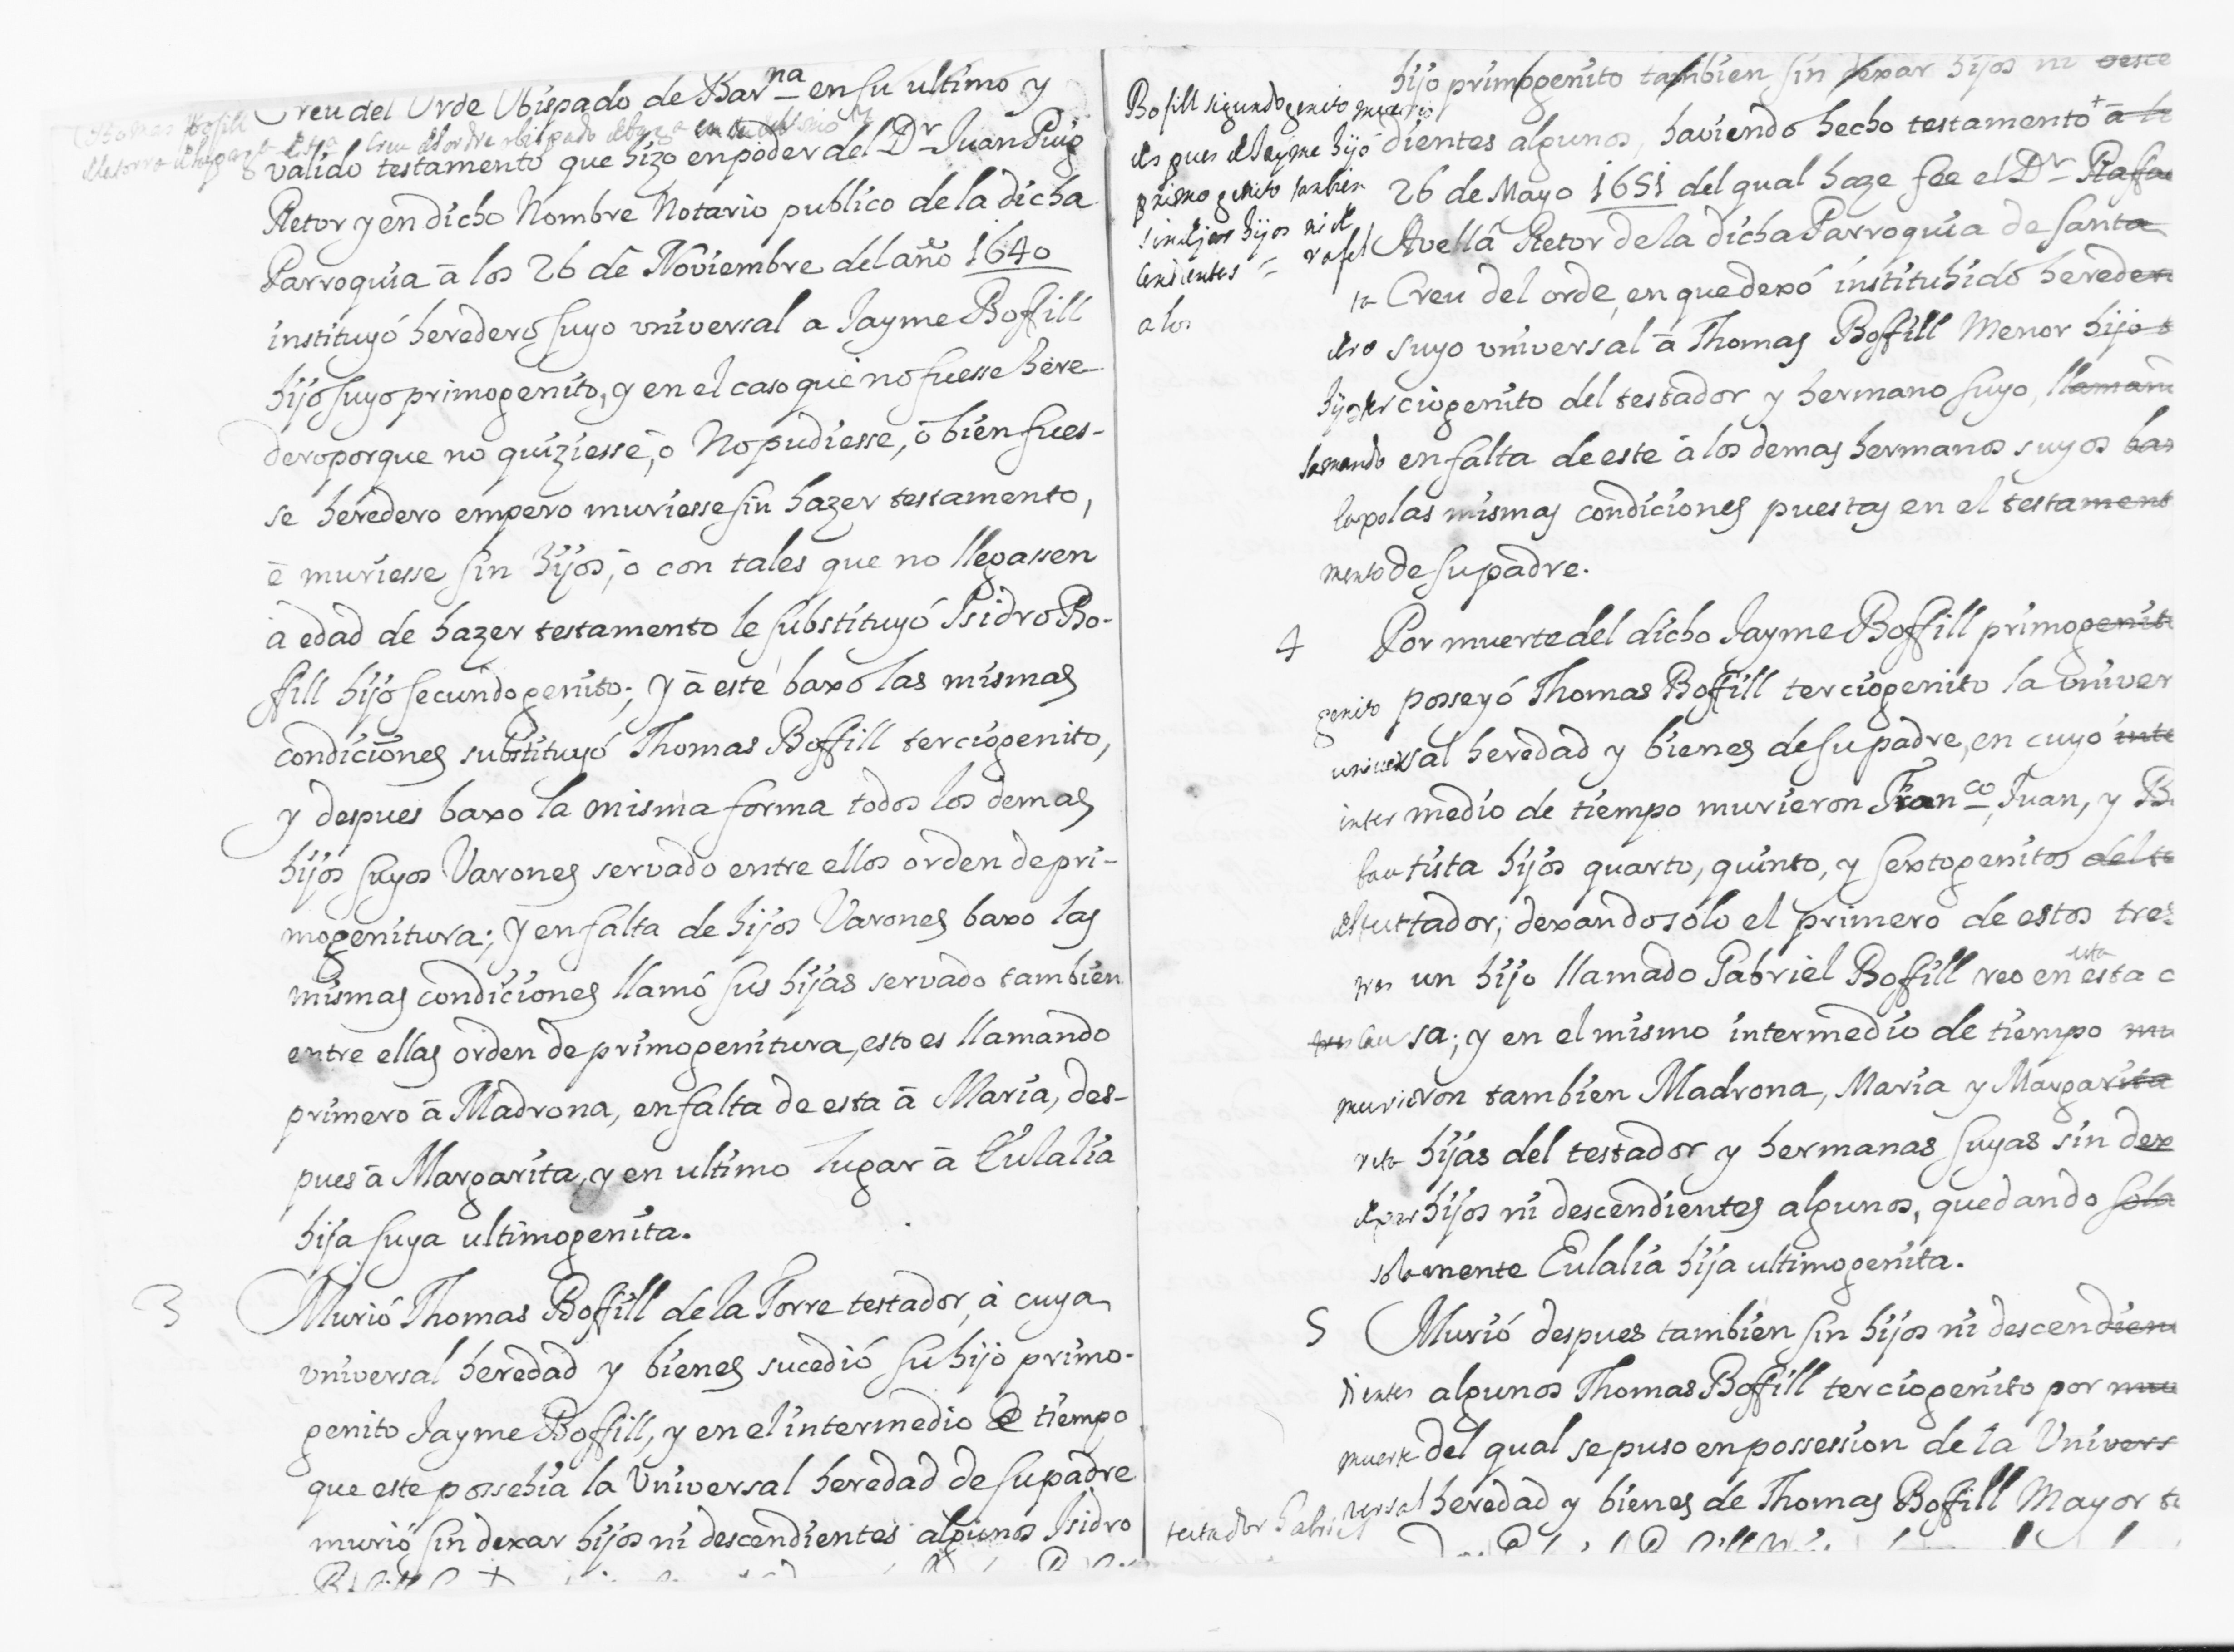 Creu del Orde Obispado de Barna en su ultimo y
valido testamento que hizo en poder del Dr Juan Puig
Retor y en dicho Nombre Notario publico de la dicha
Parroquia à los 26 de Noviembre del año 1640
instituyó heredero suyo universal a Jayme Boffill
hijo suyo primogenito, y en el caso que no fuesse here-
dero porque no quiziesse, ò No pudiesse, ò bien fues-
se heredero empero muriesse sin hazer testamento,
è muriesse sin hijos, ò con tales que no llegassen
à edad de hazer testamento le substituyó Isidro Bo-
ffill hijo secundogenito; y à este baxo las mismas
condiciones substituyó Thomas Boffill terciogenito,
y despues baxo la misma forma todos los demas
hijos suyos Varones servado entre ellos orden de pri-
mogenitura; y en falta de hijos Varones baxo las
mismas condiciones llamó sus hijas servado tambien
entre ellas orden de primogenitura, esto es llamando
primero à Madrona, en falta de esta à Maria, des-
pues à Margarita, y en ultimo lugar à Eulalia
hija suya ultimogenita.
3 Murió Thomas Boffill de la Torre testador, à cuya
universal heredad y bienes sucedió su hijo primo-
genito Jayme Boffill, y en el intermedio de tiempo
que este possehia la Universal heredad de su padre
murió sin dexar hijos ni descendientes algunos Isidro
Bofill sigundogenito
despues de Jayme hijo
primogenito tanbien
sin dejar hijos ni de
cendientes
a los
hijo primogenito tambien sin dexar hijos ni desce
dientes algunos, haviendo hecho testamento + à lo
26 de Mayo 1651 del qual haze fee el Dr Raffae
rafel Avellá Retor de la dicha Parroquia de Santa
ta Creu del orde, en que dexó instituhido heredero
dero suyo universal à Thomas Boffill Menor hijo t
hijo terciogenito del testador y hermano suyo, llamam
lamando en falta de este à los demas hermanos suyos bax
baxo las mismas condiciones puestas en el testament
mento de su padre.
4 Por muerte del dicho Jayme Boffill primogenito
genito posseyó Thomas Boffill terciogenito la univer
universal heredad y bienes de su padre, en cuyo inte
inter medio de tiempo murieron Franco, Juan, y B
bautista hijos quarto, quinto, y sextogenitos del te
del testtador; dexando solo el primero de estos tres
tres un hijo llamado Gabriel Boffill reo en esta c
causa; y en el mismo intermedio de tiempo mu
murieron tambien Madrona, Maria y Margarita
rita hijas del testador y hermanas suyas sin dex
dexar hijos ni descendientes algunos, quedando sola
solamente Eulalia hija ultimogenita.
5 Murió despues tambien sin hijos ni descendien
dientes algunos Thomas Boffill terciogenito por mue
muerte del qual se puso en possession de la Univers
versal heredad y bienes de Thomas Boffill Mayor te
testador Gabri